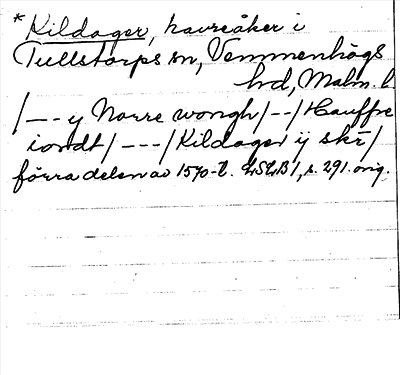 *Kildager, havreåker i
Tullstorps sn, Vemmenhögs
hd, Malm. l.
/--- y Norre wongh/--/Hauffre
iordt/---/Kildager ij skr/
förra delen av 1570-t. LSLB 1, s. 291. orig.